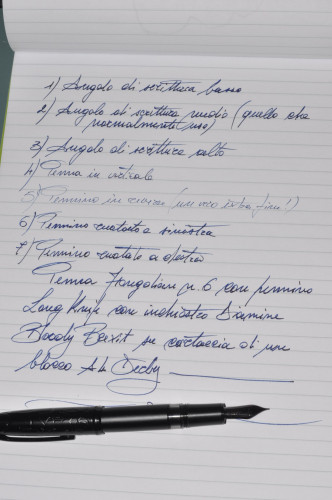 1) Angolo di scrittura basso
2) Angolo di scrittura medio (quello che
normalmente uso)
3) Angolo di scrittura alto
4) Penna in verticale
5) Pennino in (un vero extra fine!)
6) Pennino ruotato a sinistra
7) Pennino ruotato a destra
Penna n. 6 con pennino
Long Knife con inchiostro Diamine
Bloody Brexit su cartaccia di un
blocco